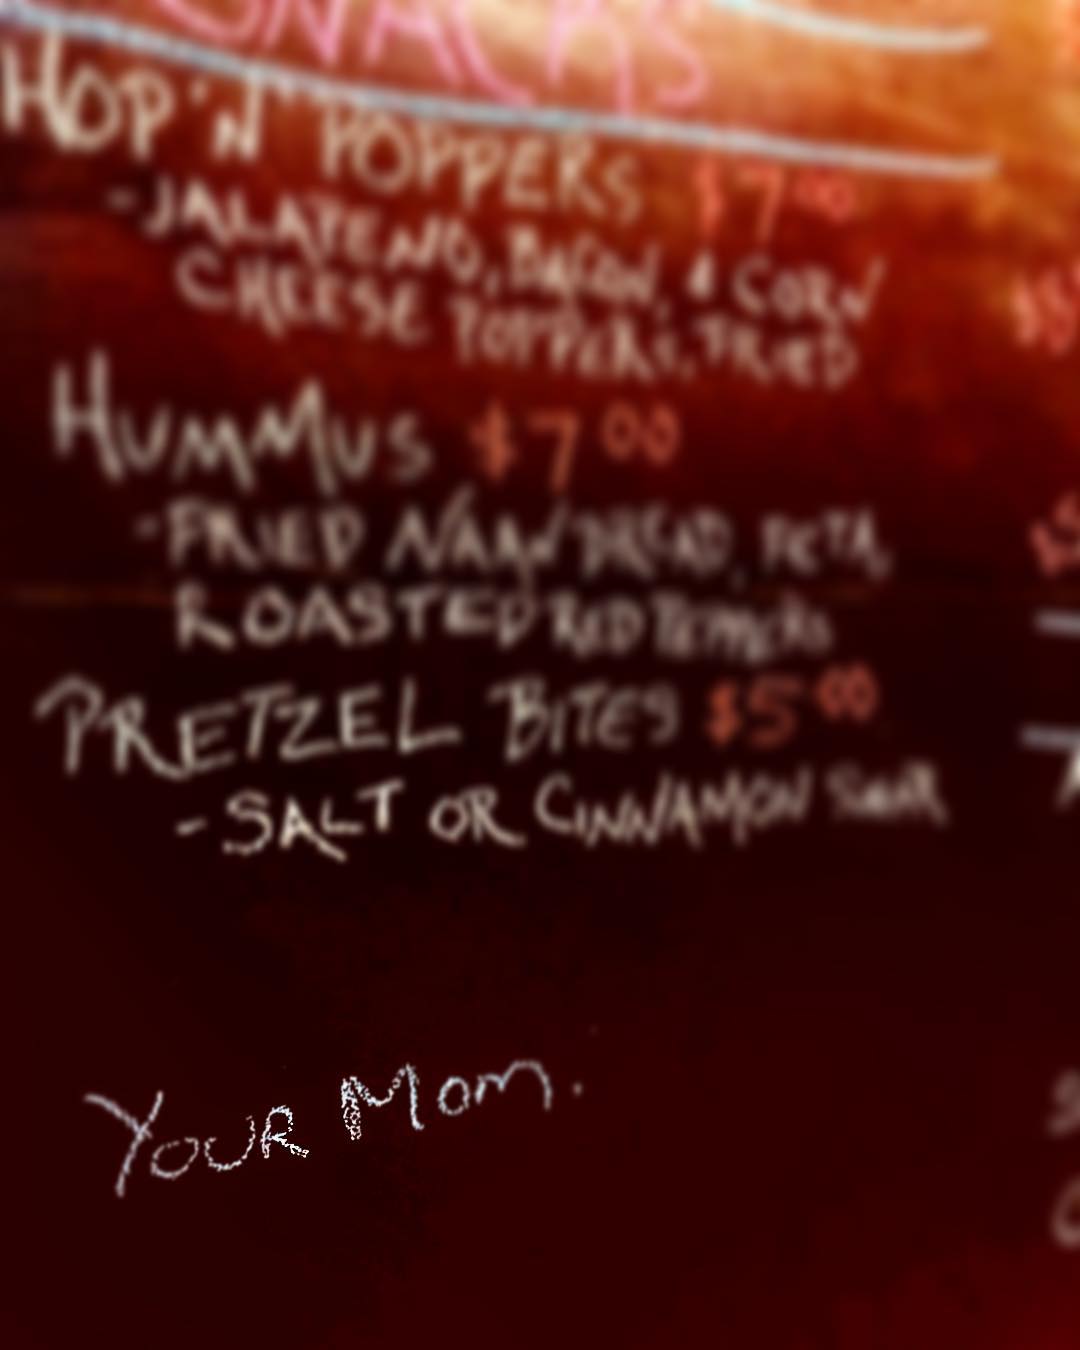 SNACKS
HOP 'N' POPPERS $7.00
- JALAPENO, BACON, & CORN
CHEESE POPPERS, FRIED
HUMMUS $7.00
- FRIED NAAN BREAD, FETA,
ROASTED RED PEPPERS
PRETZEL BITES $5.00
- SALT OR CINNAMON SUGAR
YOUR MOM.